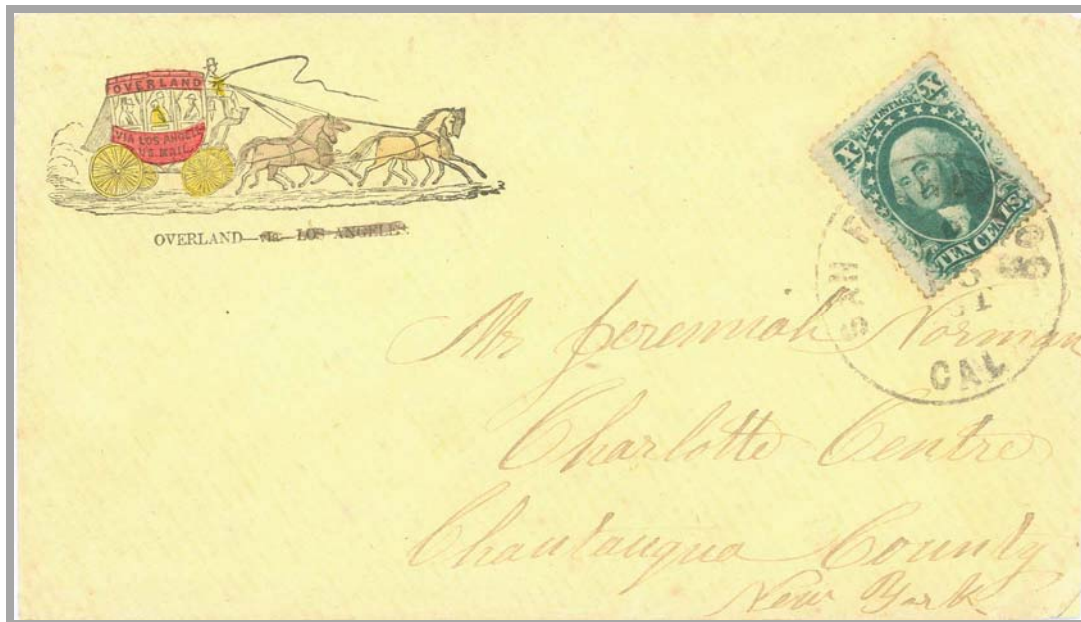 OVERLAND
VIA LOS ANGELES
U.S. MAIL.
OVERLAND—via—LOS ANGELES.
X X
TEN CENTS
SAN
CAL
Mr Jeremiah Norman
Charlotte Centre
Chautauqua County
New York